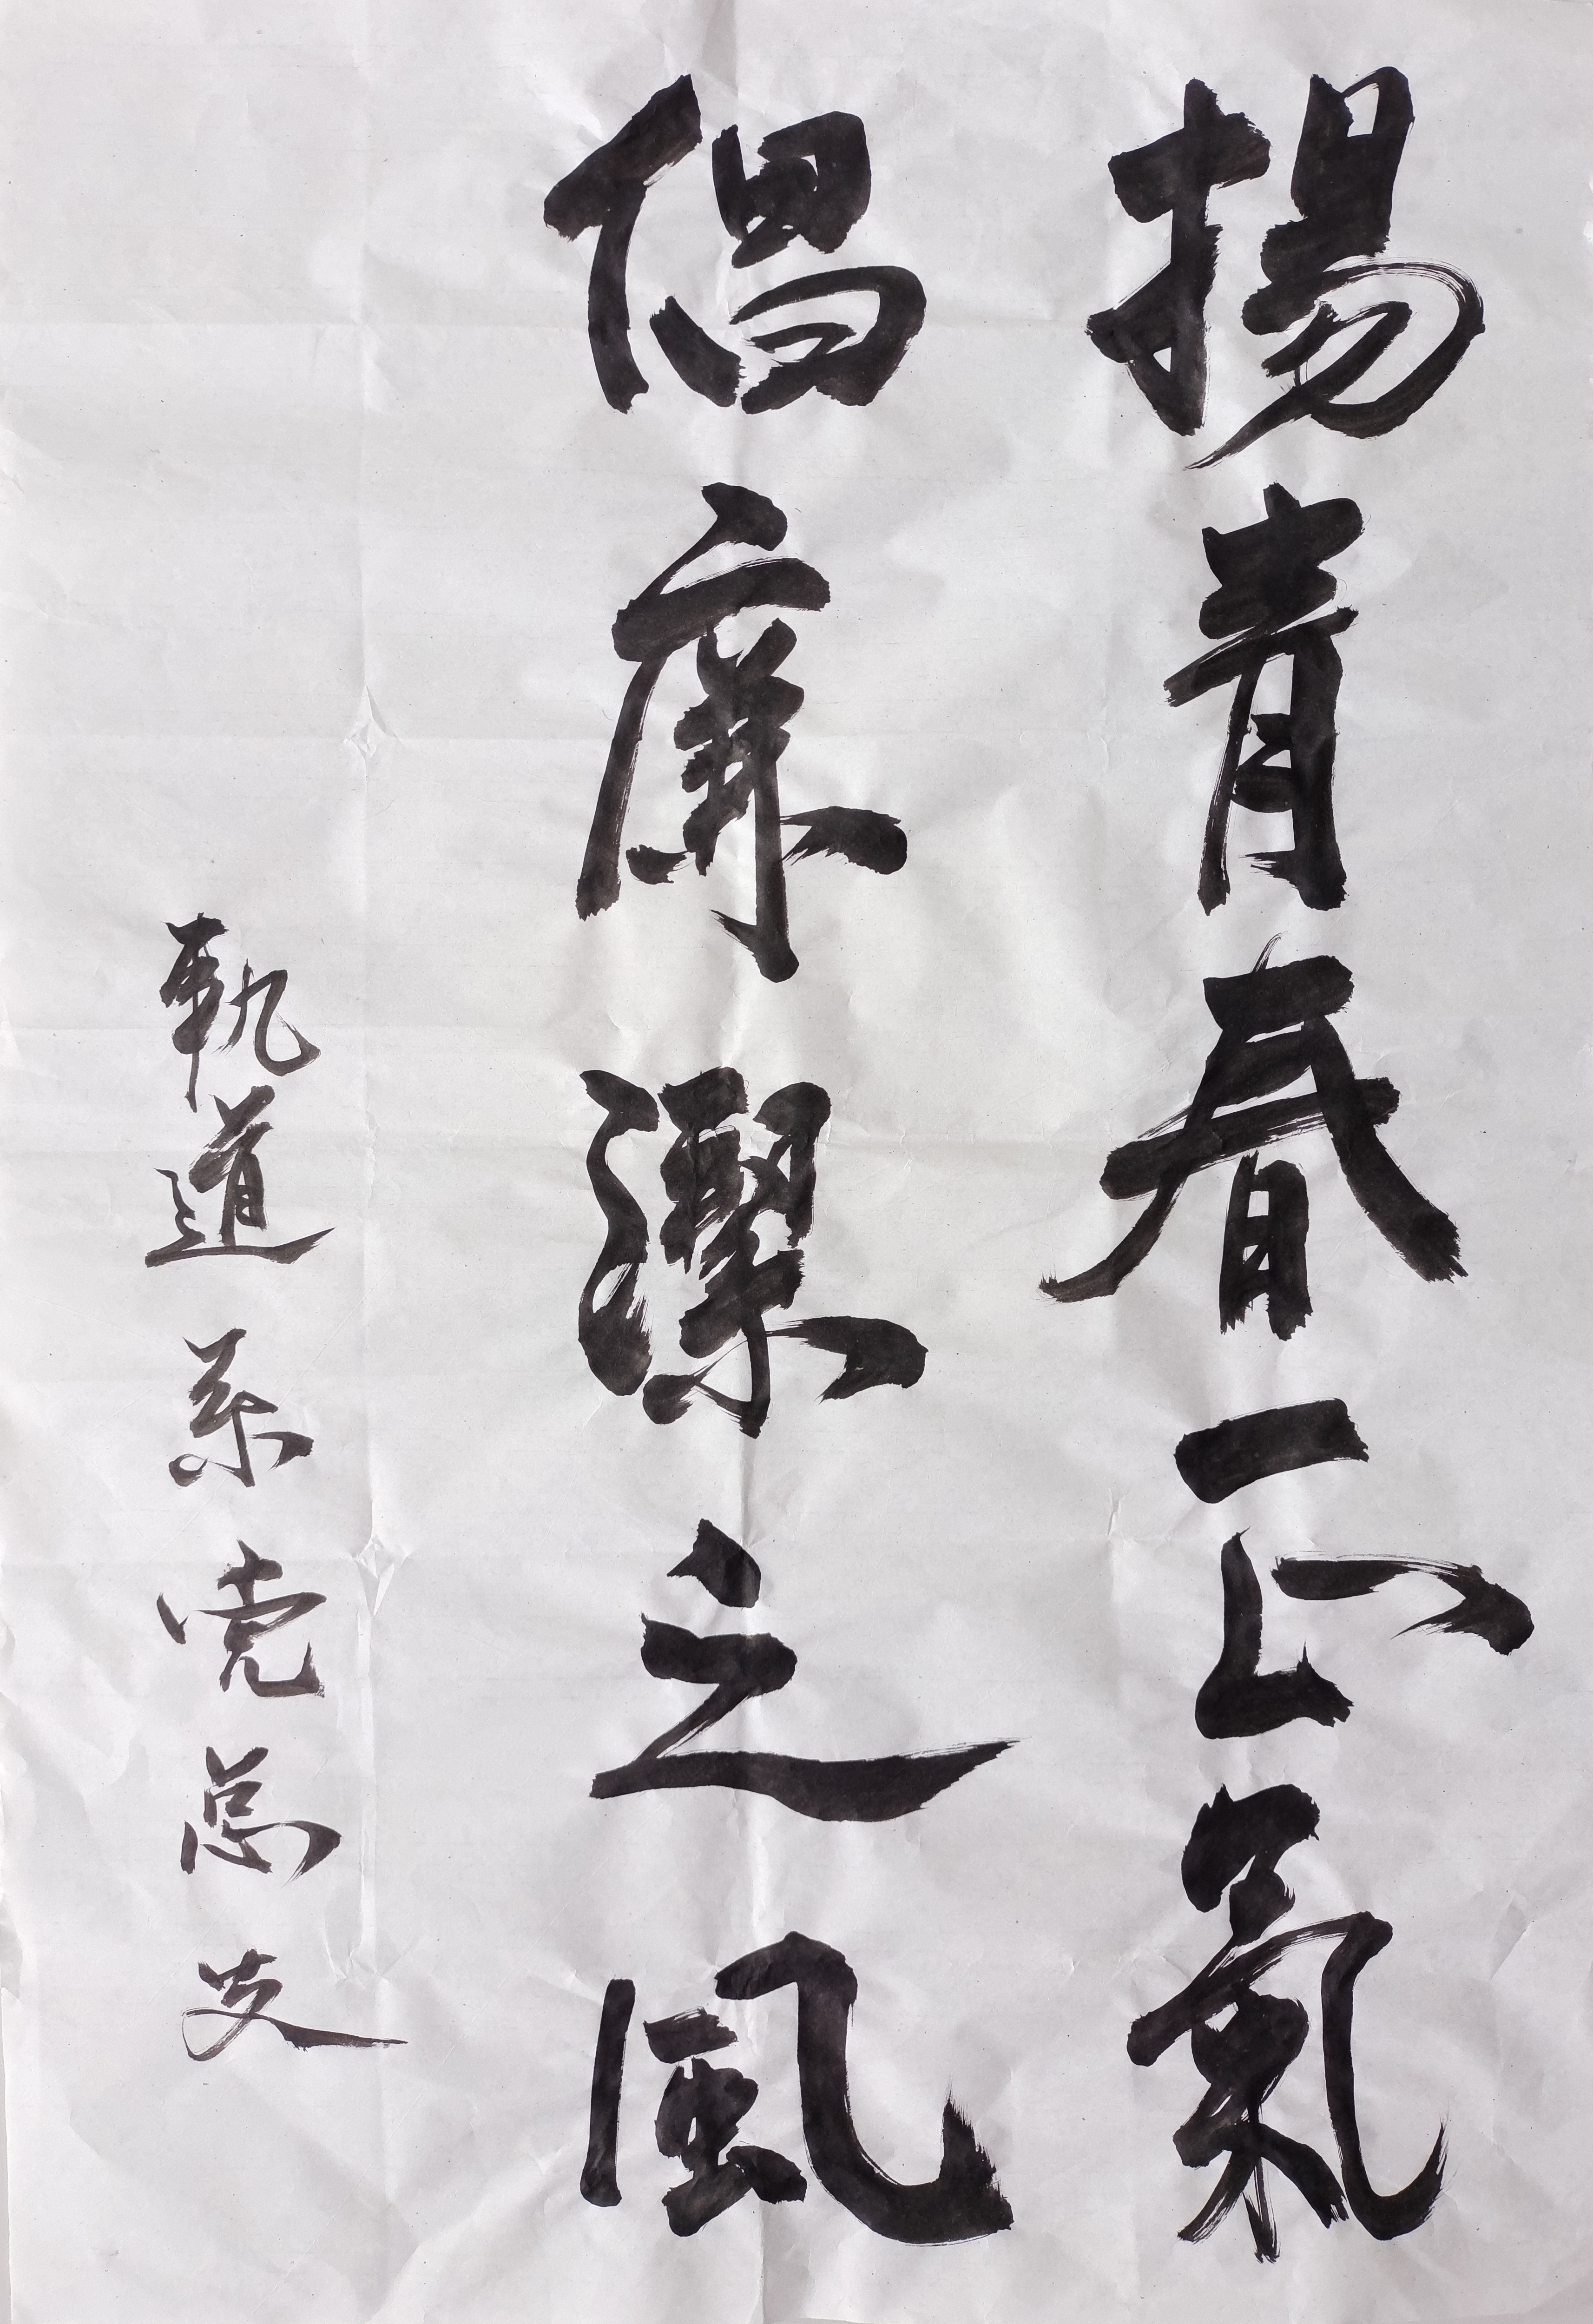 揚青春正氣
倡廉潔之風
軌道系党总支